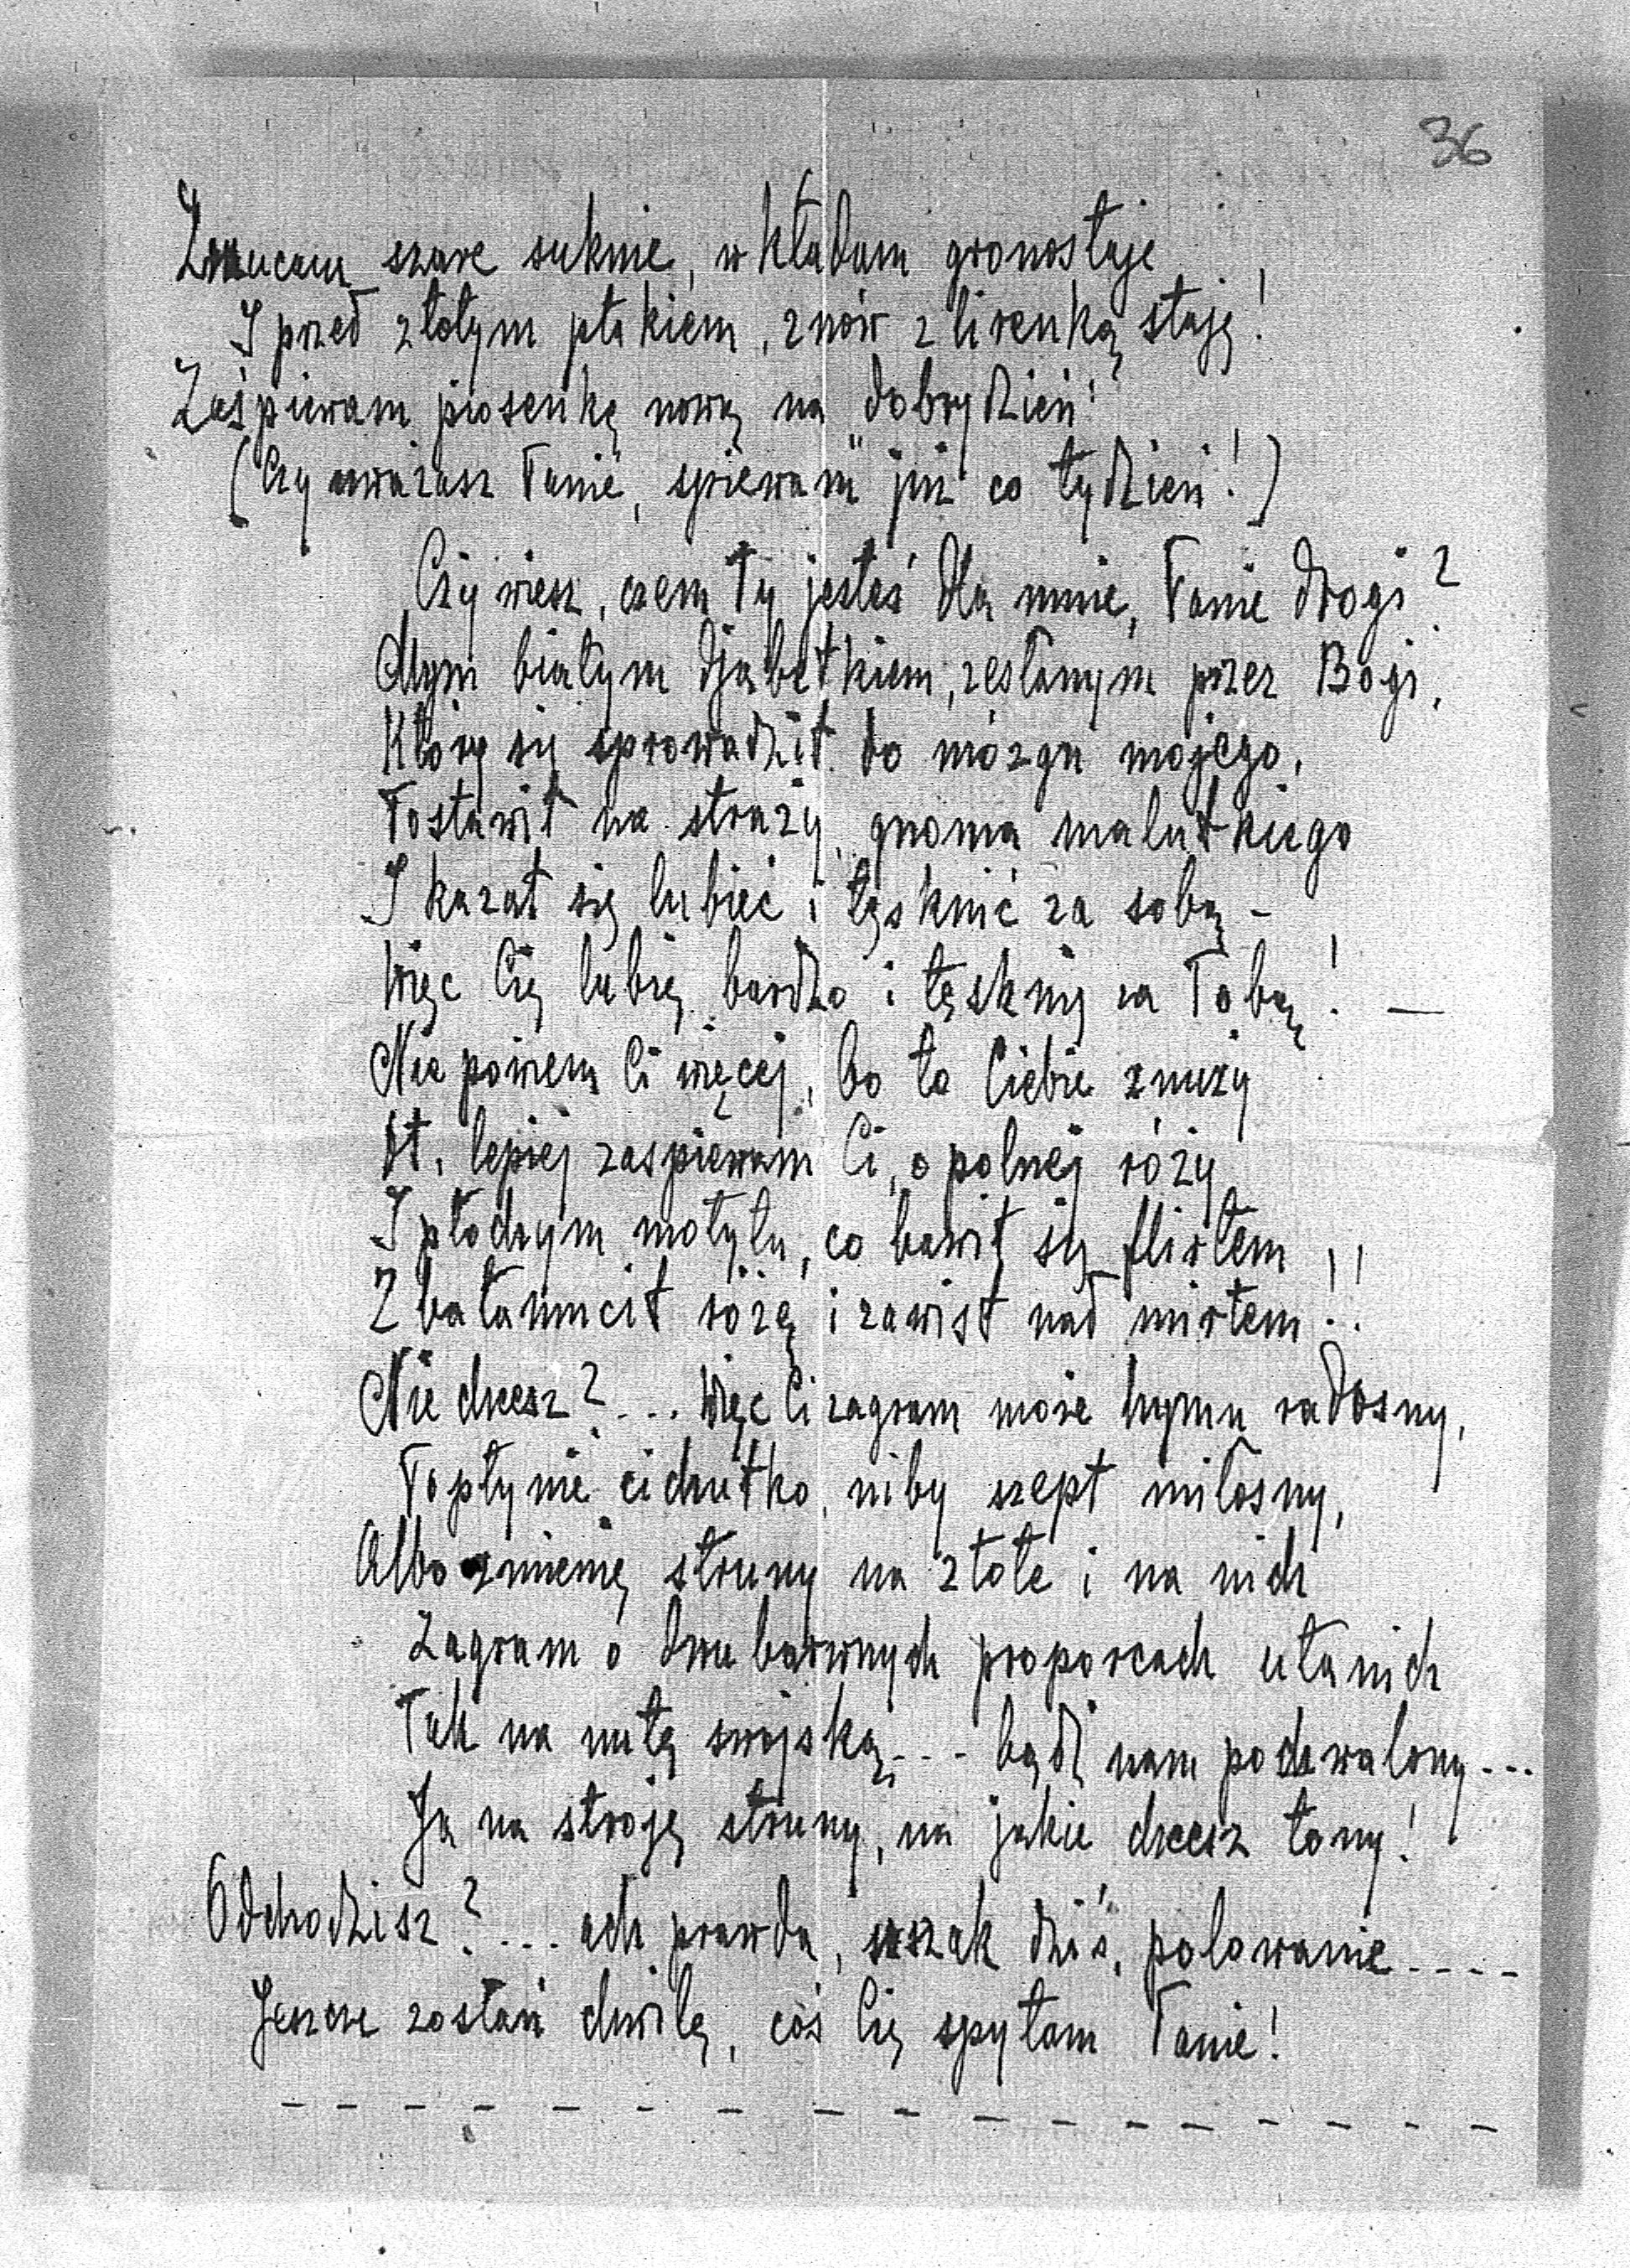 36
Zrzucam szare suknie, wkładam gronostaje
I przed złotym ptakiem, znów z lirenką staję!
Zaśpiewam piosenkę nową na dobrydzień!
(Czy uważasz Panie, śpiewam" już co tydzień!)
Czy wiesz, czem Ty jesteś dla mnie, Panie drogi?
Mym białym djabełkiem, zesłanym przez Bogi,
Który się sprowadził do mózgu mojego,
Postawił na straży gnoma malutkiego
I kazał się lubieć i tęsknić za sobą –
Więc Cię lubię bardzo i tęsknię za Tobą! —
Nie powiem Ci więcej, bo to Ciebie znuży
Ot, lepiej zaśpiewam Ci, o polnej róży
I płochym motylu, co bawił się flirtem
Zbałamucił różę i zawisł nad mirtem!!
Nie chcesz?... Więc Ci zagram może hymn radosny,
Popłynie cichutko, niby szept miłosny,
Albo zmienię struny na złote i na nich
Zagram o dwubarwnych proporcach ułanich
Tak na nutę swojską... bądź nam pochwalony...
Ja na stroję struny, na jakie chcesz tony!
Odchodzisz?... ach prawda, wszak dziś, polowanie....
Jeszcze zostań chwilę, coś Cię spytam Panie!